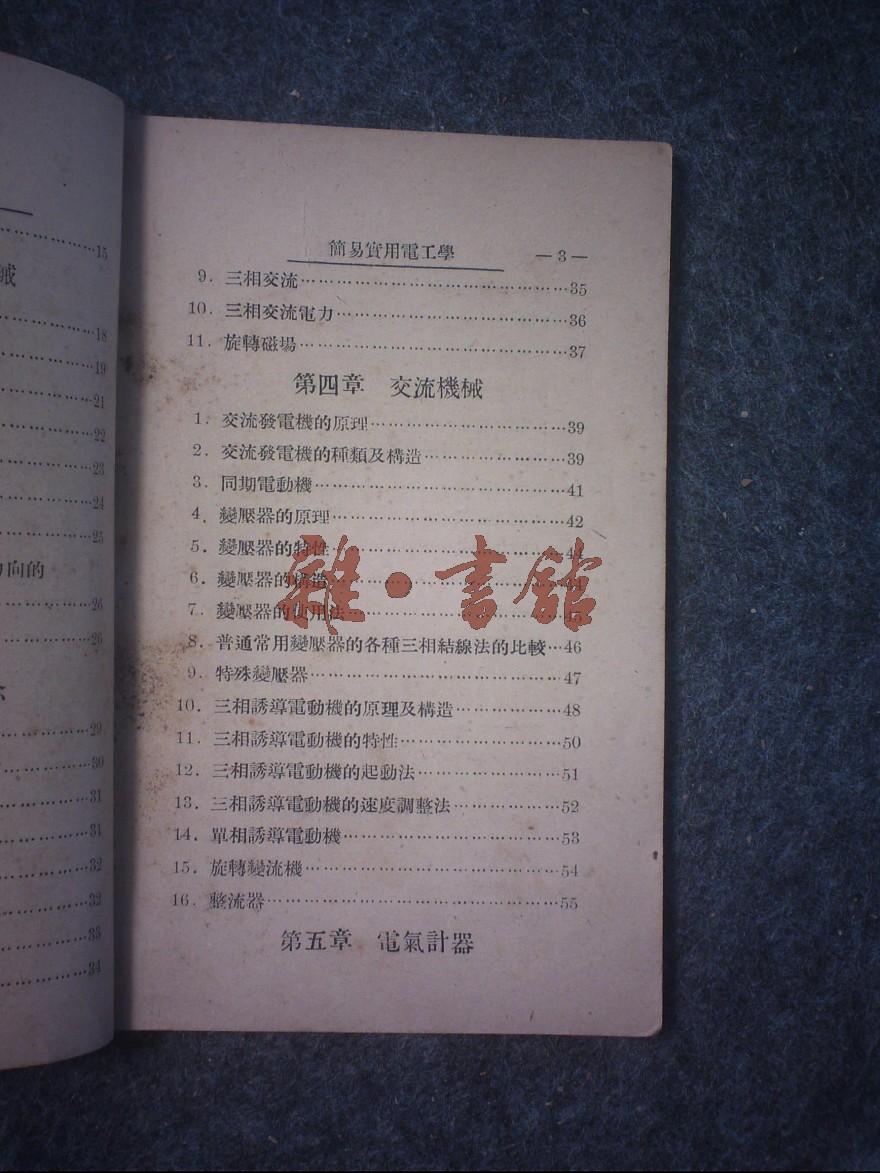 15
械
18
19
21
22
23
24
25
向的
26
26
29
30
31
31
32
32
33
34
簡易實用電工學 —3—
9. 三相交流………35
10. 三相交流電力………36
11. 旋轉磁場………37
第四章 交流機械
1. 交流發電機的原理………39
2. 交流發電機的種類及構造………39
3. 同期電動機………41
4. 變壓器的原理………42
5. 變壓器的特性………44
6. 變壓器的構造………44
7. 變壓器的使用法………45
8. 普通常用變壓器的各種三相結線法的比較…46
9. 特殊變壓器………47
10. 三相誘導電動機的原理及構造………48
11. 三相誘導電動機的特性………50
12. 三相誘導電動機的起動法………51
13. 三相誘導電動機的速度調整法………52
14. 單相誘導電動機………53
15. 旋轉變流機………54
16. 整流器………55
第五章 電氣計器
雜·書館